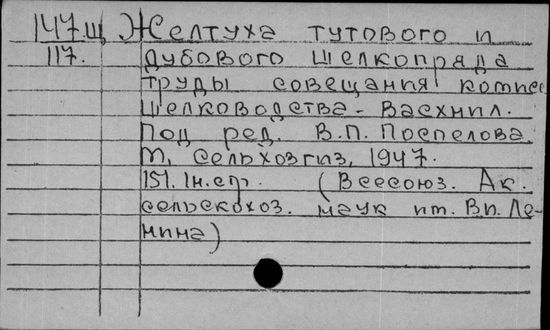 147.щ Желтуха тутового и
117. дубового шелкопряда
труды совещания комис
шелководства - Васхнил.
Под ред. В.П. Поспелова.
М, Сельхозгиз, 1947.
151. 1н.стр. (Всесоюз. Ак.
сельскохоз. наук им. В.И. Ле-
нина)